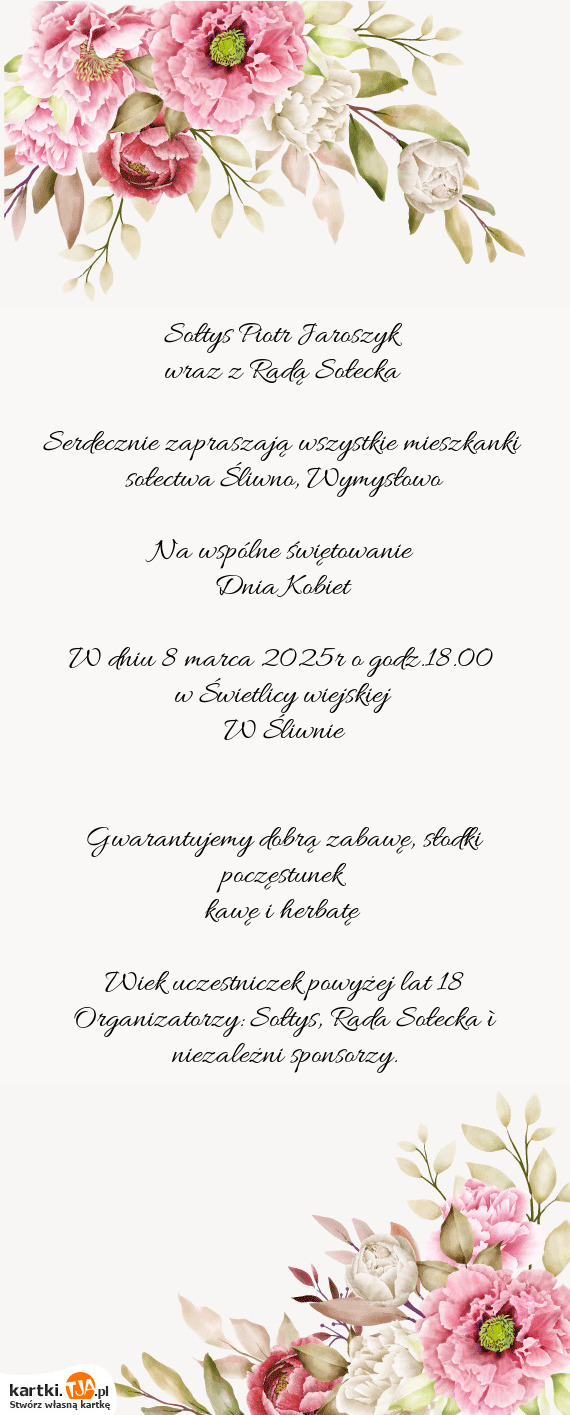 Sołtys Piotr Jaroszyk
wraz z Radą Sołecka
Serdecznie zapraszają wszystkie mieszkanki
sołectwa Śliwno, Wymysłowo
Na wspólne świętowanie
Dnia Kobiet
W dniu 8 marca 2025r o godz.18.00
w Świetlicy wiejskiej
W Śliwnie
Gwarantujemy dobrą zabawę, słodki
poczęstunek
kawę i herbatę
Wiek uczestniczek powyżej lat 18
Organizatorzy: Sołtys, Rada Sołecka ì
niezależni sponsorzy.
kartki.TJA.pl
Stwórz własną kartkę